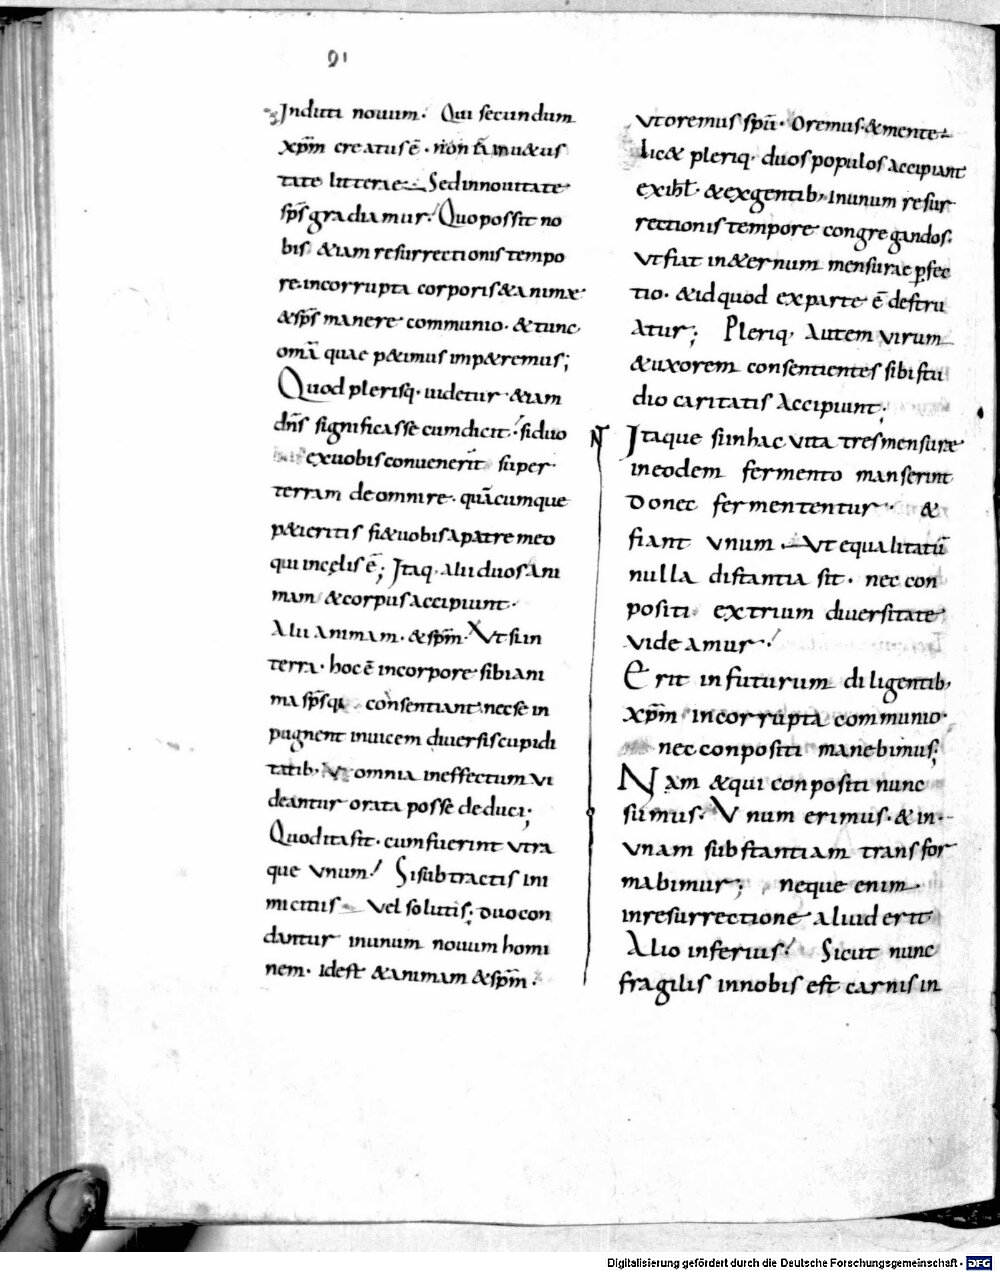 91
Induti nouum· Qui secundum
xp̅m creatus ē· non tā in uetus
tate litterae Sed in nouitate
sp̅s gradiamur· Quo possit no
bis etiam resurrectionis tempo
re incorrupta corporis & animae
& sp̅s manere communio· & tunc
om̅a quae petimus impetremus;
Quod plerisq· uidetur etiam
dn̅s significasse cum dicit· si duo
ex uobis conuenerit super
terram de omni re· quācumque
petieritis fiet uobis a patre meo
qui in cęlis ē; Itaq· alii duos ani
mam & corpus accipiunt·
Alii animam· & sp̅m· Ut si in
terra· hoc ē in corpore sibi ani
ma sp̅sq; consentiant nec se in
pugnent inuicem diuersis cupidi
tatib; Ut omnia in effectum ui
deantur orata posse deduci;
Quod ita fit· cum fuerint utra
que unum! Si subtractis ini
micitiis Vel solutis; duo con
dantur in unum nouum homi
nem· id est & animam & sp̅m·
Ut oremus sp̅u· Oremus & mente
lic& pleriq· duos populos accipiant
ex ihl̅· & ex gentib; In unum resur
rectionis tempore congregandos·
Ut fiat in aeternum mensurae p̱fec
tio· & id quod ex parte ē destru
atur; Pleriq· Autem virum
& uxorem consentientes sibi stu
dio caritatis Accipiunt;
Itaque si in hac vita tres mensurae
in eodem fermento manserint
Donec fermententur· &
fiant unum Ut equalitatū
nulla distantia sit· nec con
positi ex trium diuersitate
videamur·
Erit in futurum diligentib;
xp̅m incorrupta communio·
nec conpositi manebimus;
Nam & qui conpositi nunc
sumus· Unum erimus· & in
unam substantiam transfor
mabimur; neque enim
in resurrectione aliud erit
Alio inferius! Sicut nunc
fragilis in nobis est carnis in
Digitalisierung gefördert durch die Deutsche Forschungsgemeinschaft - DFG